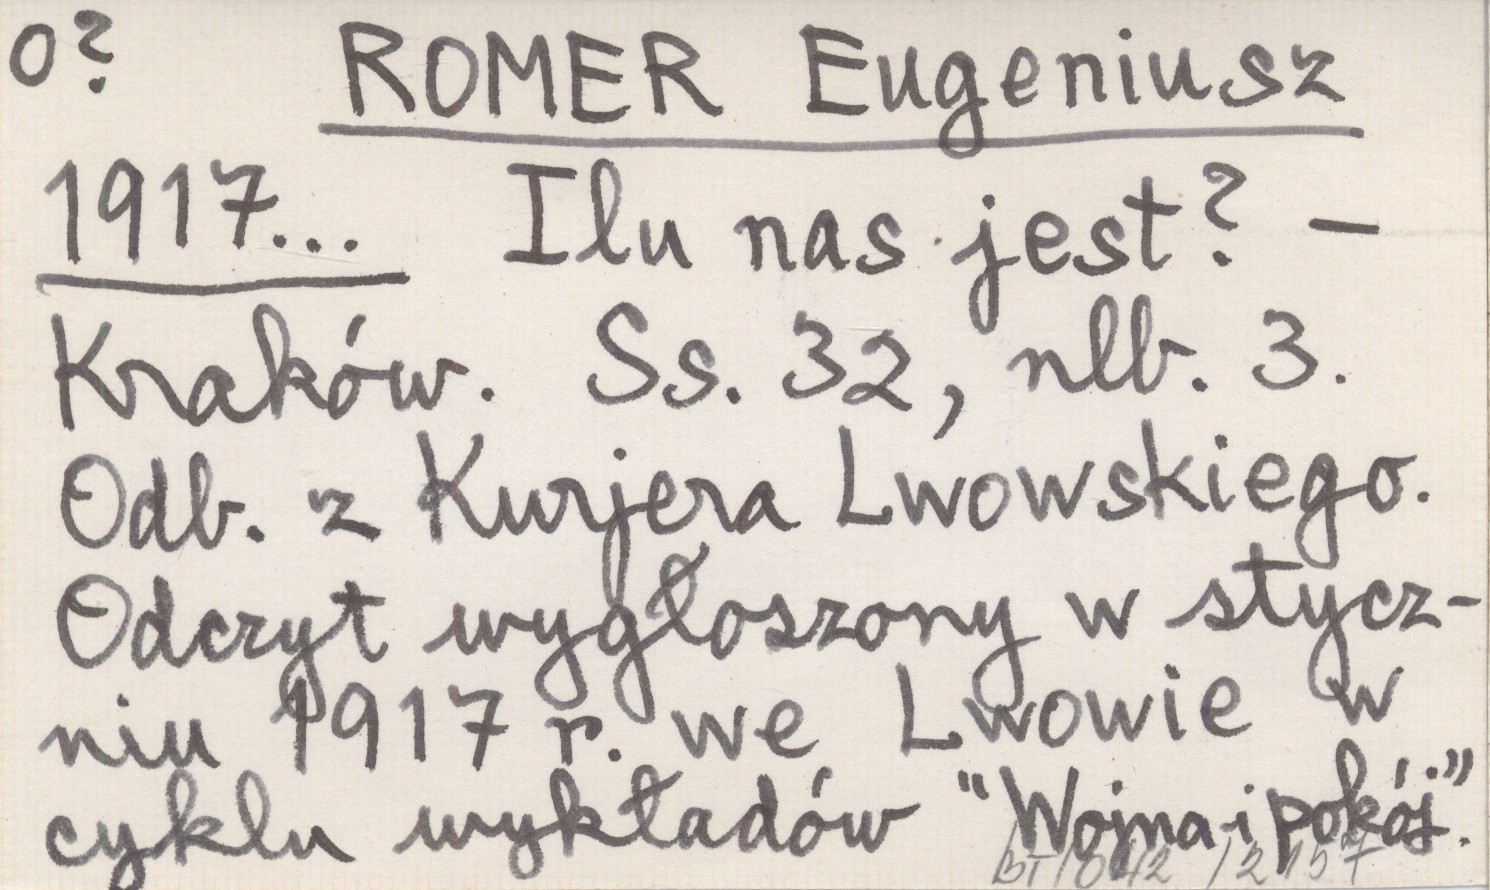 o? ROMER Eugeniusz
1917... Ilu nas jest? –
Kraków. Ss. 32, nlb. 3.
Odb. z Kurjera Lwowskiego.
Odczyt wygłoszony w stycz-
niu 1917 r. we Lwowie w
cyklu wykładów "Wojna i pokój".